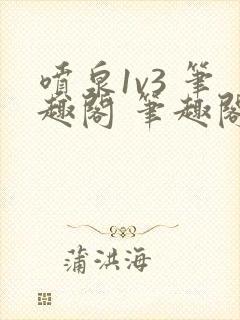 噴泉1v3 筆
趣閣 筆趣閣
蒲洪海